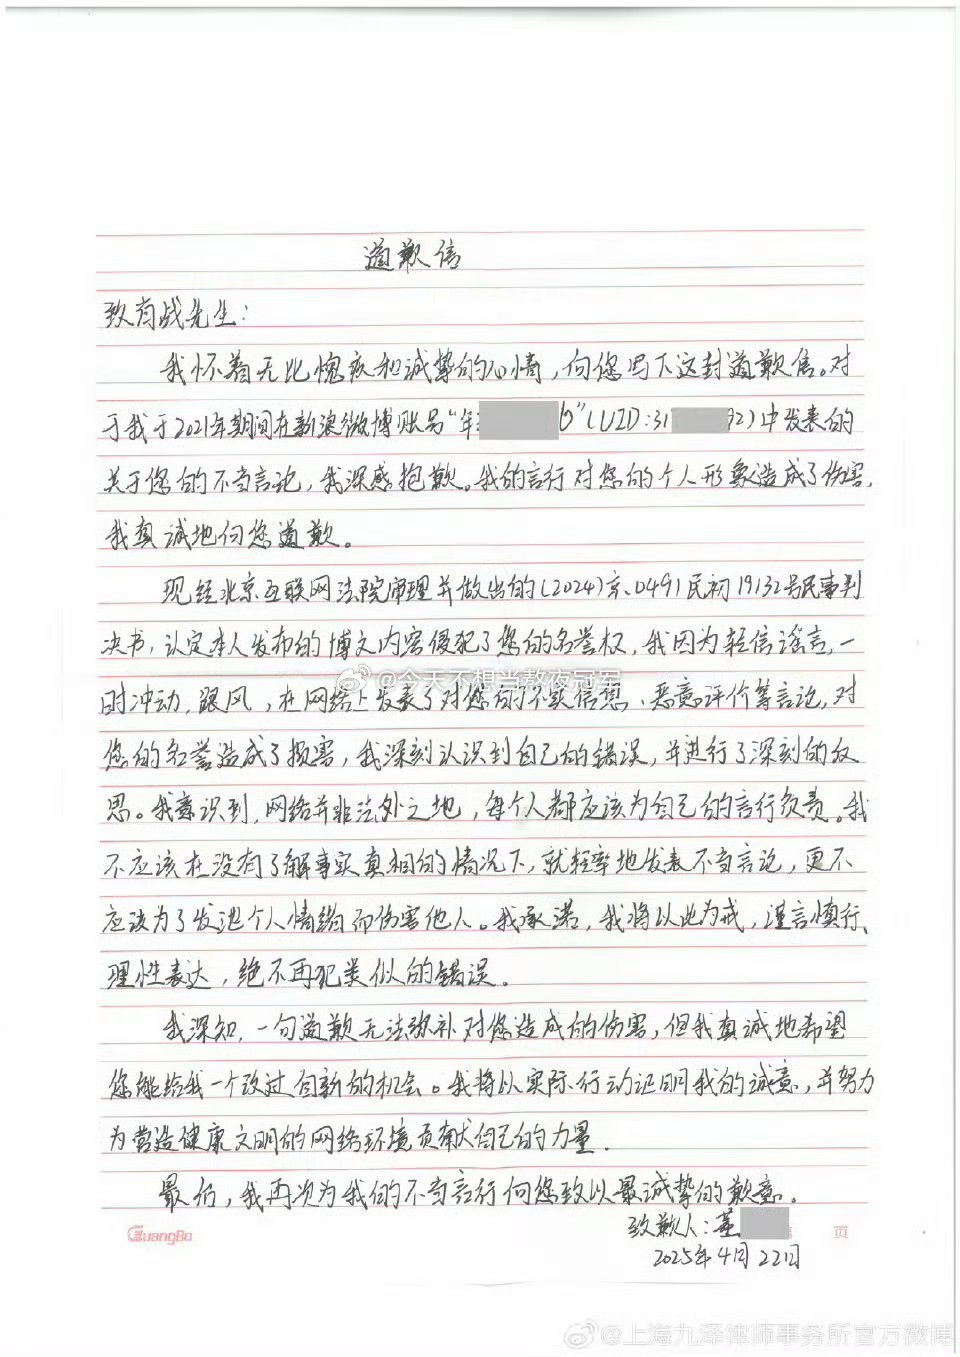 道歉信
致肖战先生：
我怀着无比愧疚和诚挚的心情，向您写下这封道歉信。对
于我于2021年期间在新浪微博账号“年 b”（UID：31 92）中发表的
关于您的不当言论，我深感抱歉。我的言行对您的个人形象造成了伤害，
我真诚地向您道歉。
现经北京互联网法院审理并做出的（2024）京0491民初19132号民事判
决书，认定本人发布的博文内容侵犯了您的名誉权，我因为轻信谣言，一
时冲动，跟风，在网络上发表了对您的不实信息、恶意评价等言论，对
您的名誉造成了损害，我深刻认识到自己的错误，并进行了深刻的反
思。我意识到，网络并非法外之地，每个人都应该为自己的言行负责。我
不应该在没有了解事实真相的情况下，就轻率地发表不当言论，更不
应该为了发泄个人情绪而伤害他人。我承诺，我将以此为戒，谨言慎行、
理性表达，绝不再犯类似的错误。
我深知，一句道歉无法弥补对您造成的伤害，但我真诚地希望
您能给我一个改过自新的机会。我将以实际行动证明我的诚意，并努力
为营造健康文明的网络环境贡献自己的力量。
最后，我再次为我的不当言行向您致以最诚挚的歉意。
致歉人：董
2025年4月22日
GuangBo
页
@今天不想当熬夜冠军
@上海九泽律师事务所官方微博